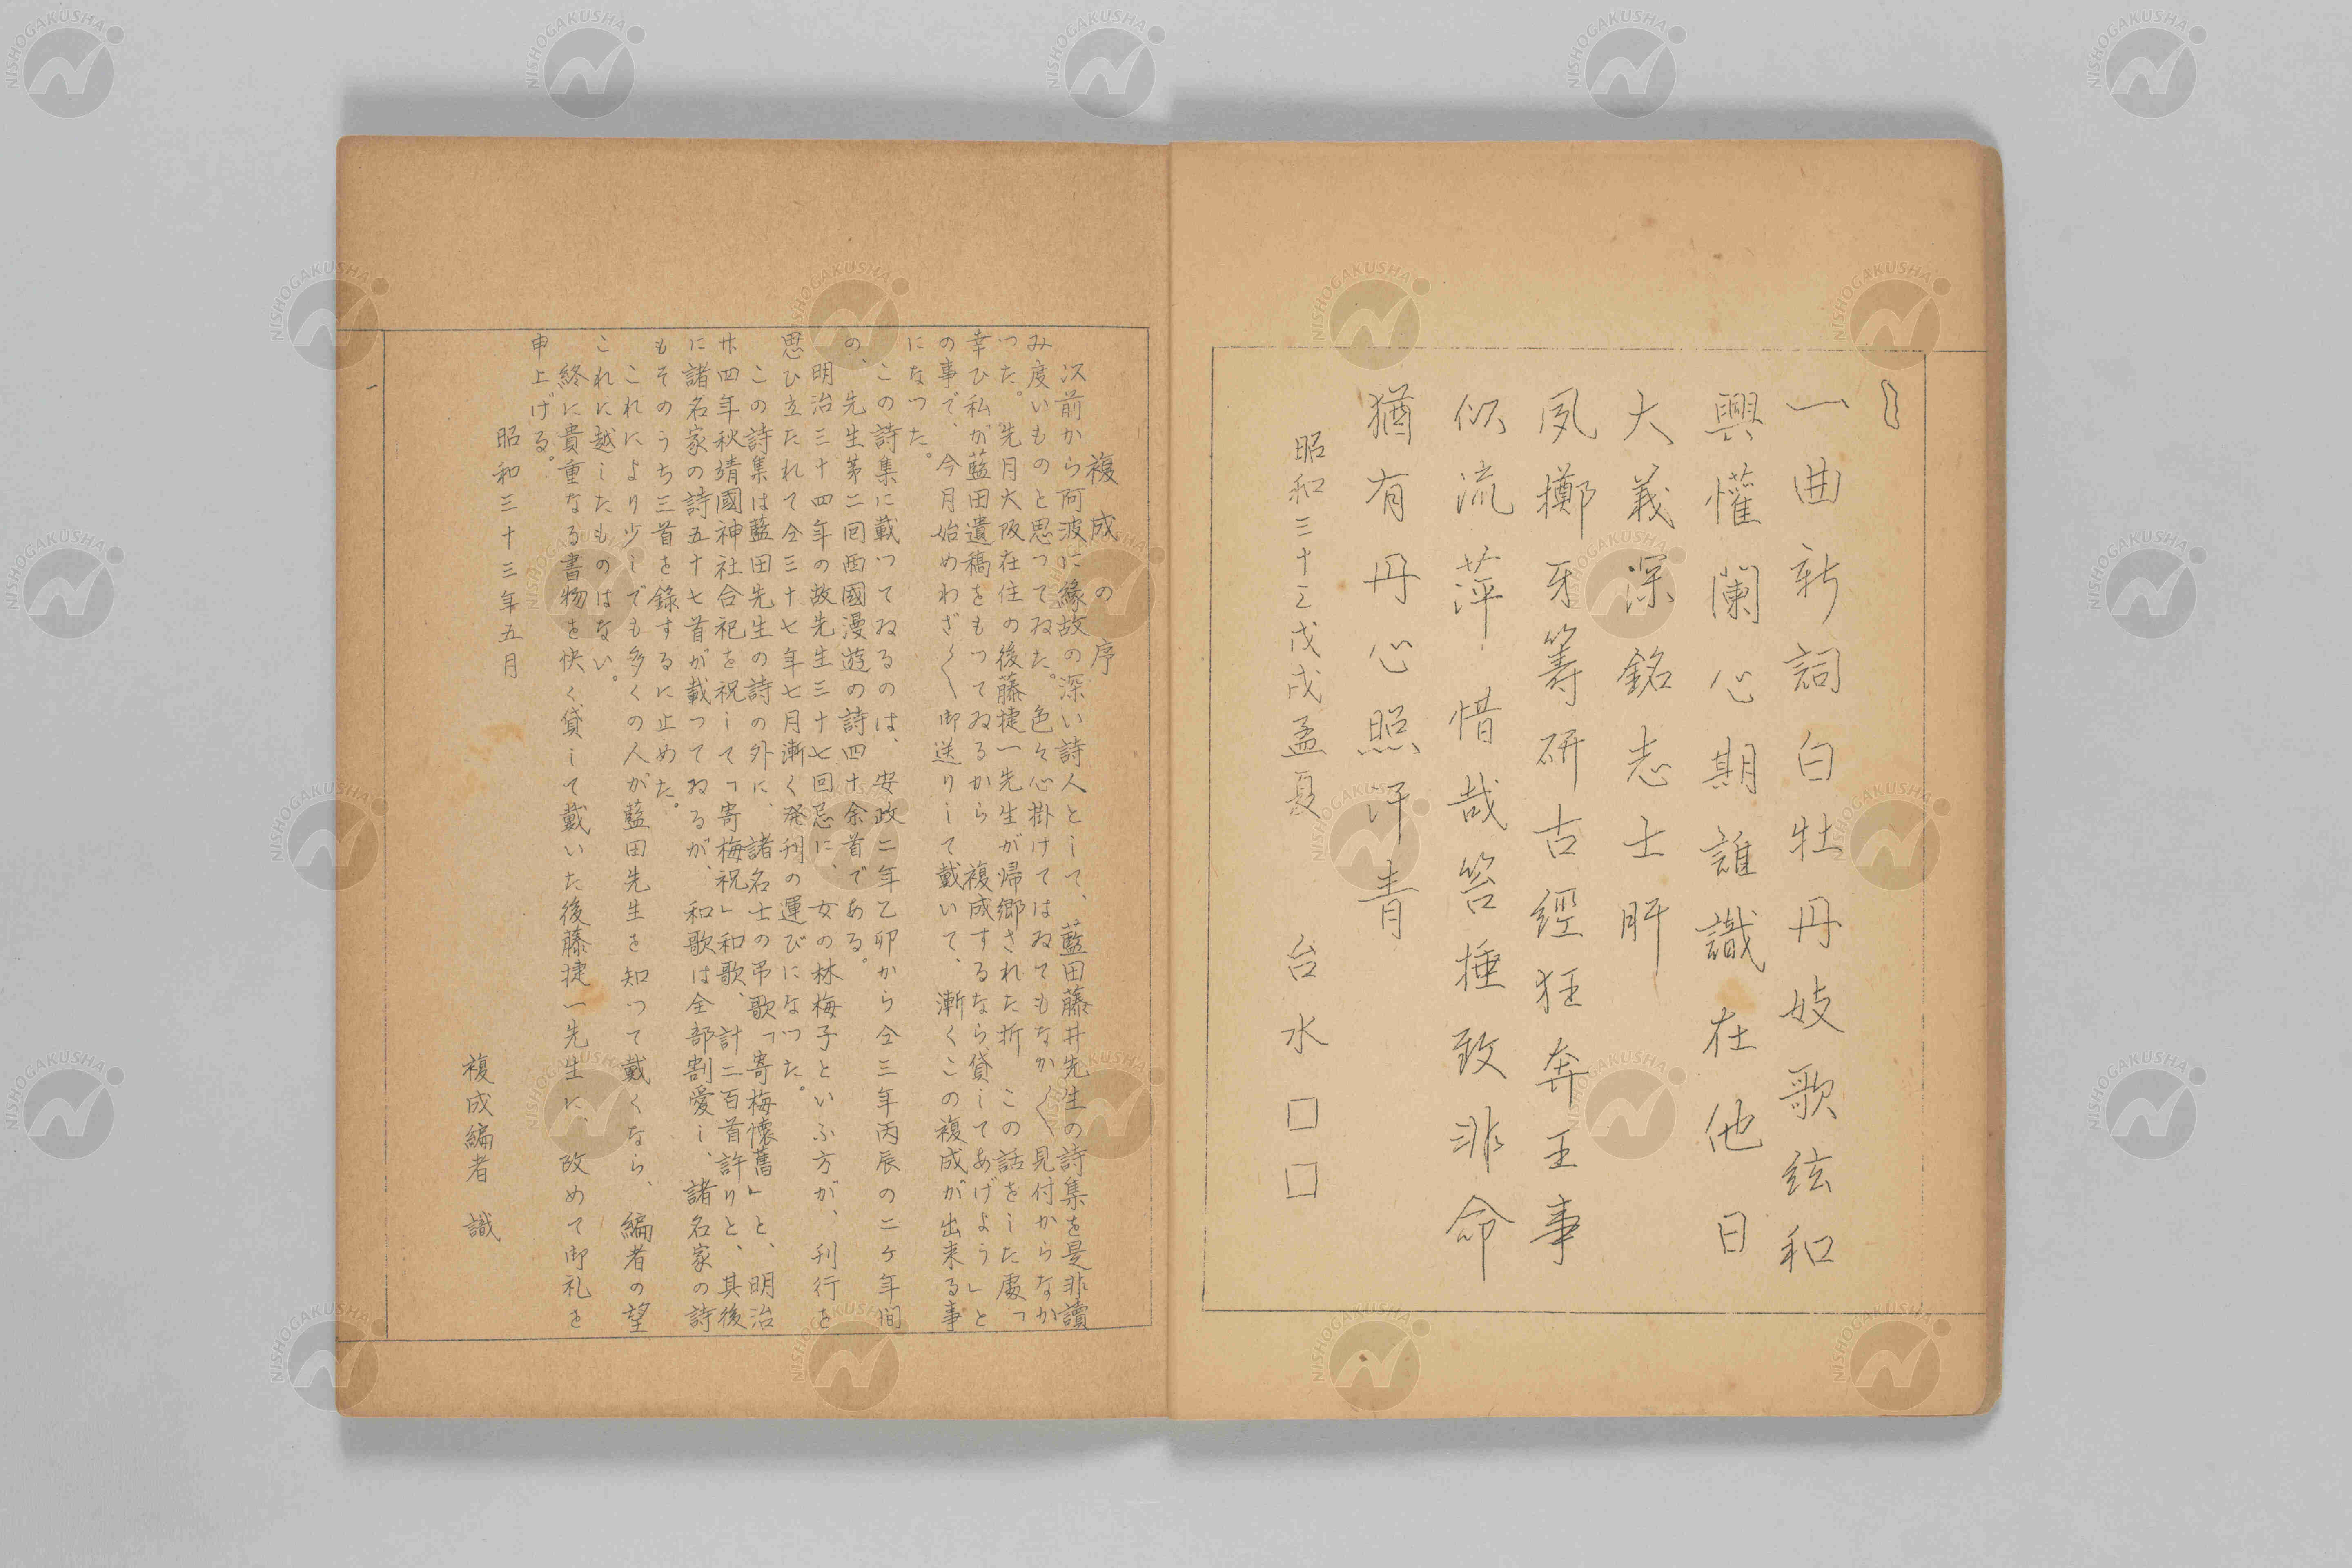 一曲新詞白牡丹妓歌絃和
興懽闌心期誰識在他日
大義深銘志士肝
夙擲牙籌研古經狂奔王事
似流萍惜哉箠致非命
猶有丹心照汗青
昭和三十三戊戌孟夏 台水□□
複成の序
以前から阿波に緣故の深い詩人として、藍田藤井先生の詩集を是非讀
み度いものと思つてゐた。色々心掛けてはゐてもなか〱見付からなか
つた。先月大阪在住の後藤捷一先生が帰郷された折 この話をした處「
幸ひ私が藍田遺稿をもつてゐるから 複成するなら貸してあげよう」と
の事で、今月始めわざ〱御送りして戴いて、漸くこの複成が出来る事
になつた。
この詩集に載つてゐるのは、安政二年乙卯から仝三年丙辰の二ケ年間
の、先生第二回西國漫遊の詩四十余首である。
明治三十四年の故先生三十七回忌に、女の林梅子といふ方が、刊行を
思ひ立たれて仝三十七年七月漸く発刊の運びになつた。
この詩集は藍田先生の詩の外に、諸名士の弔歌「寄梅懷舊」と、明治
廿四年秋靖國神社合祀を祝して「寄梅祝」和歌、計二百首許りと、其後
に諸名家の詩五十七首が載つてゐるが、和歌は全部割愛し、諸名家の詩
もそのうち三首を錄するに止めた。
これにより少しでも多くの人が藍田先生を知つて戴くなら、編者の望
これに越したものはない。
終に貴重なる書物を快く貸して戴いた後藤捷一先生に、改めて御礼を
申上げる。
昭和三十三年五月
複成編者 識
一
NISHOGAKUSHA